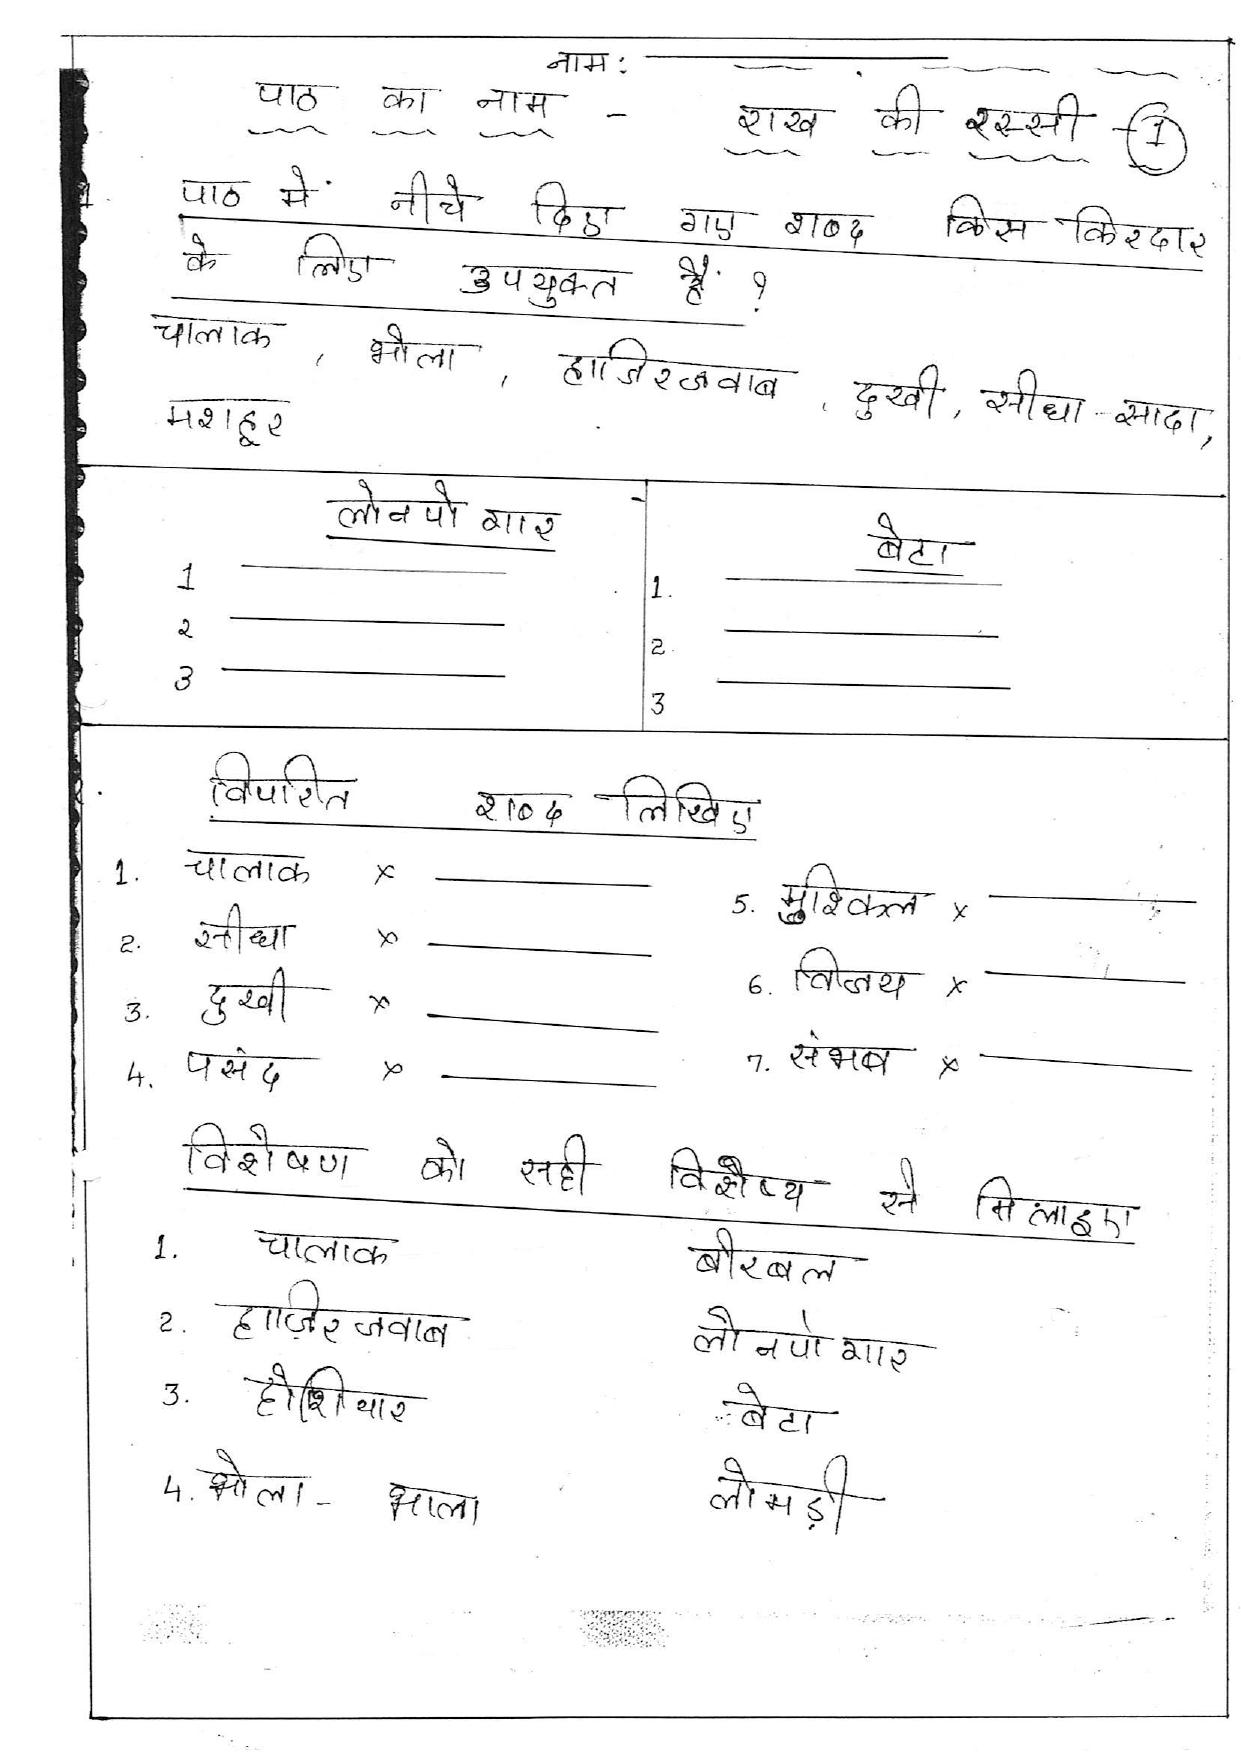 नाम:
पाठ का नाम - राख की रस्सी - 1
1. पाठ में नीचे दिए गए शब्द किस किरदार
के लिए उपयुक्त हैं ?
चालाक, भोला, हाजिरजवाब, दुखी, सीधा-सादा,
मशहूर
लोनपो गार
बेटा
1
2
3
1.
2.
3
विपरित शब्द लिखिए
1. चालाक x
2. सीधा x
3. दुखी x
4. पसंद x
5. मुश्किल x
6. विजय x
7. संभब x
विशेषण को सही विशेष्य से मिलाइए
1. चालाक बीरबल
2. हाज़िरजवाब लोनपो गार
3. होशियार बेटा
4. भोला - भाला लोमड़ी